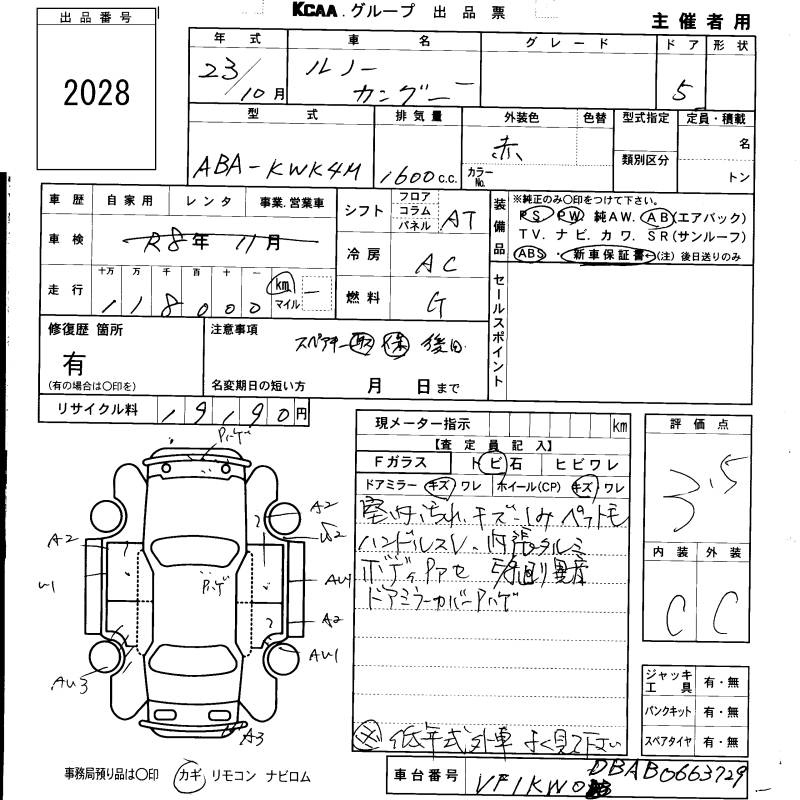 KCAA.グループ 出品票
主催者用
出品番号
2028
年式 車名 グレード ドア 形状
23/10月 ルノー カングー 5
型式 排気量 外装色 色替 型式指定 定員・積載
ABA-KWK4M 1600c.c. 赤 カラーNo. 類別区分 名
トン
車歴 自家用 レンタ 事業.営業車
車検 R8年11月
走行 十万 万 千 百 十 一
118000 km マイル
シフト フロア コラム パネル AT
冷房 AC
燃料 G
装備品
※純正のみ〇印をつけて下さい。
PS PW 純AW. AB(エアバック)
TV. ナビ. カワ. SR(サンルーフ)
ABS ・ 新車保証書 (注)後日送りのみ
セールスポイント
修復歴 箇所
有
(有の場合は〇印を)
注意事項
スペアキー 取 保 後日
名変期日の短い方 月 日まで
リサイクル料 19190円
現メーター指示 km
【査定員記入】
Fガラス トビ石 ヒビワレ
ドアミラー キズ ワレ ホイール(CP) キズ ワレ
ハンドルスレ、内張
ドアミラーカバーPハゲ
低年式外車 よく見て下さい
評価点
3.5
内装 外装
C C
Pハゲ
A2
A2
W2
Pハゲ
AU1
A2
AU1
AU3
A3
ジャッキ工具 有・無
パンクキット 有・無
スペアタイヤ 有・無
事務局預り品は〇印 カギ リモコン ナビロム
車台番号 VF1KW0DBAB0663729